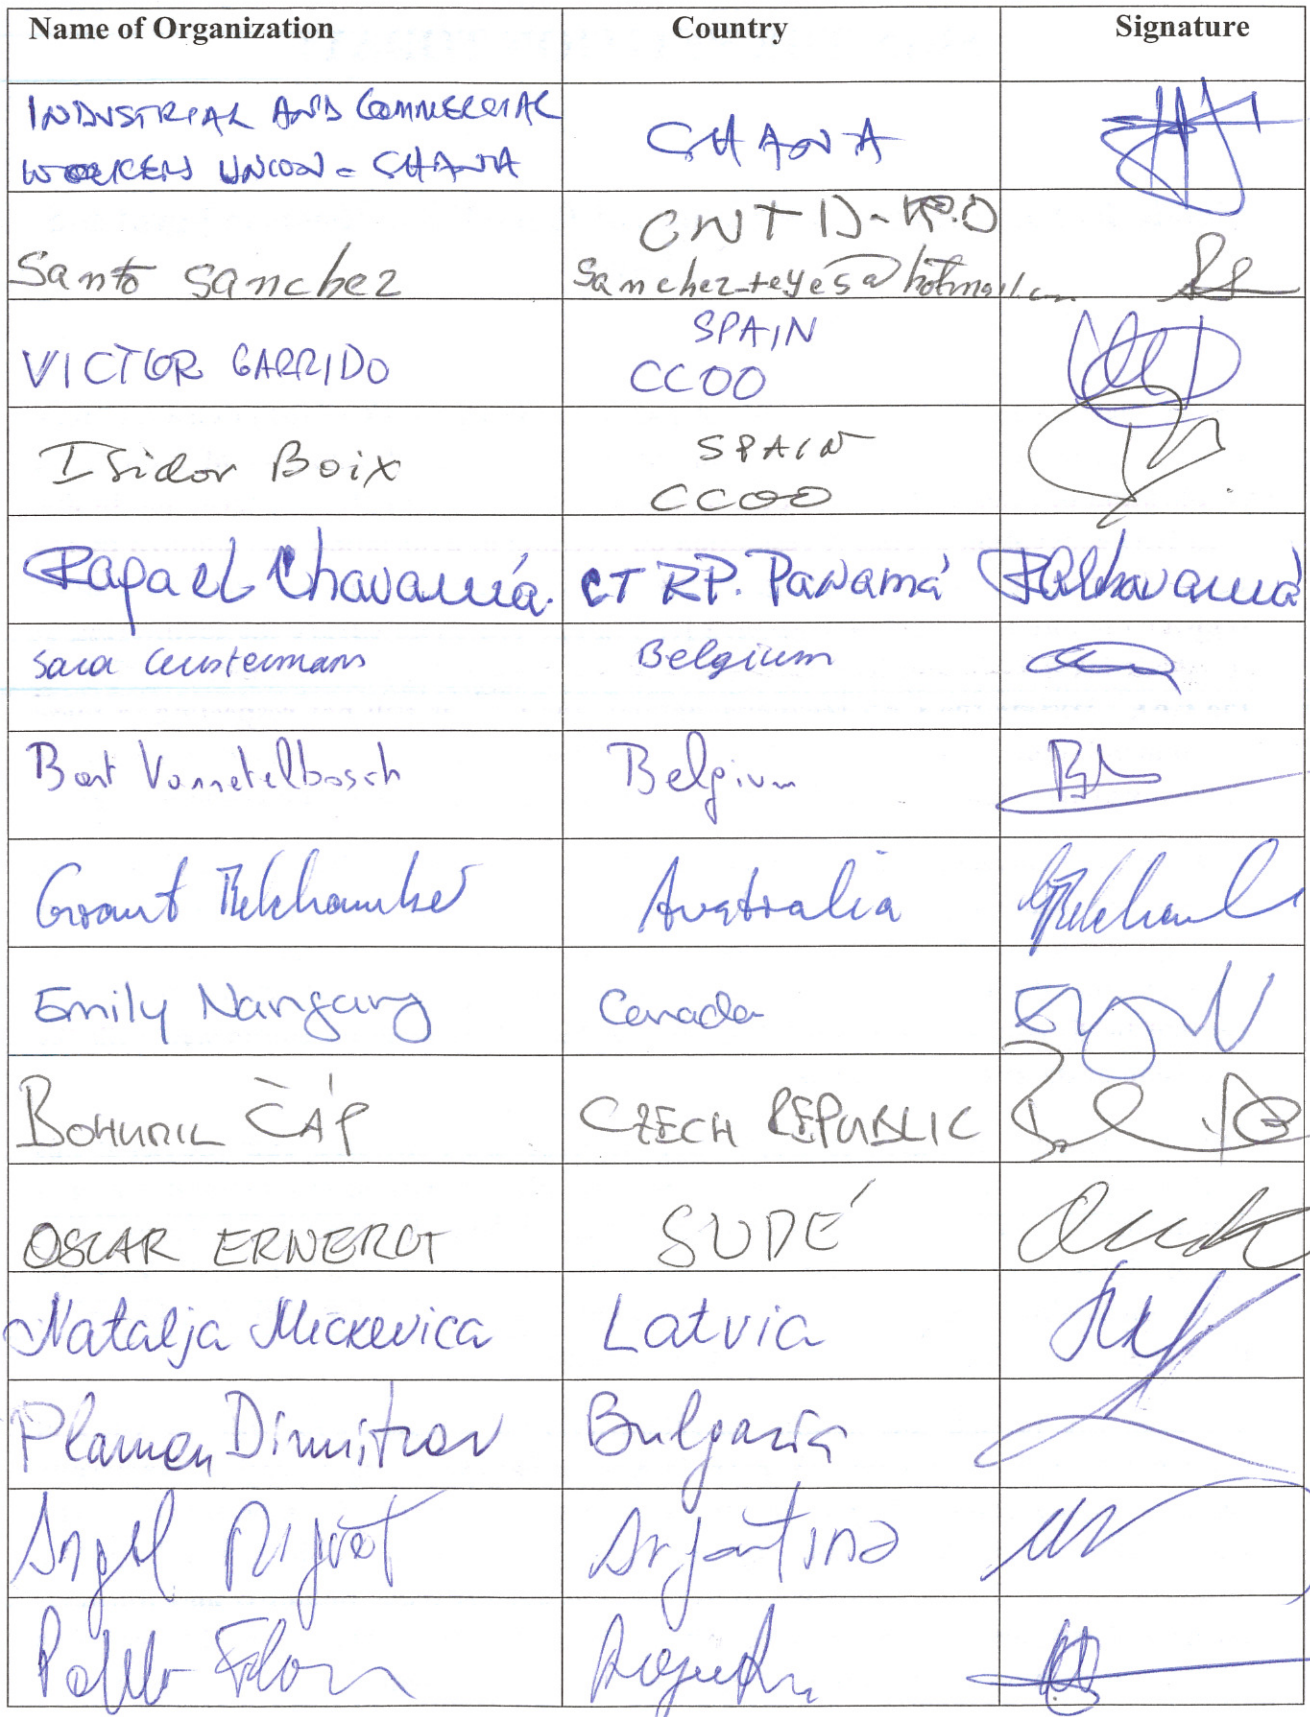 Name of Organization Country Signature
INDUSTRIAL AND COMMERCIAL
WORKERS UNION - GHANA
GHANA
CNTD-R.D
Santo Sanchez
Sanchez-reyes@hotmail.com
SPAIN
VICTOR GARRIDO
CCOO
SPAIN
Isidor Boix
CCOO
Rafael Chavarría. CT RP. Panamá RChavarría
Sara Ceustermans Belgium
Bart Vannetelbosch Belgium
Grant Belchamber Australia
Emily Nangang Canada
BOHUMIL ČÁP CZECH REPUBLIC
OSCAR ERNEROT SUDÉ
Natalja Mickevica Latvia
Plamen Dimitrov Bulgaria
Angel Argentina
Pablo